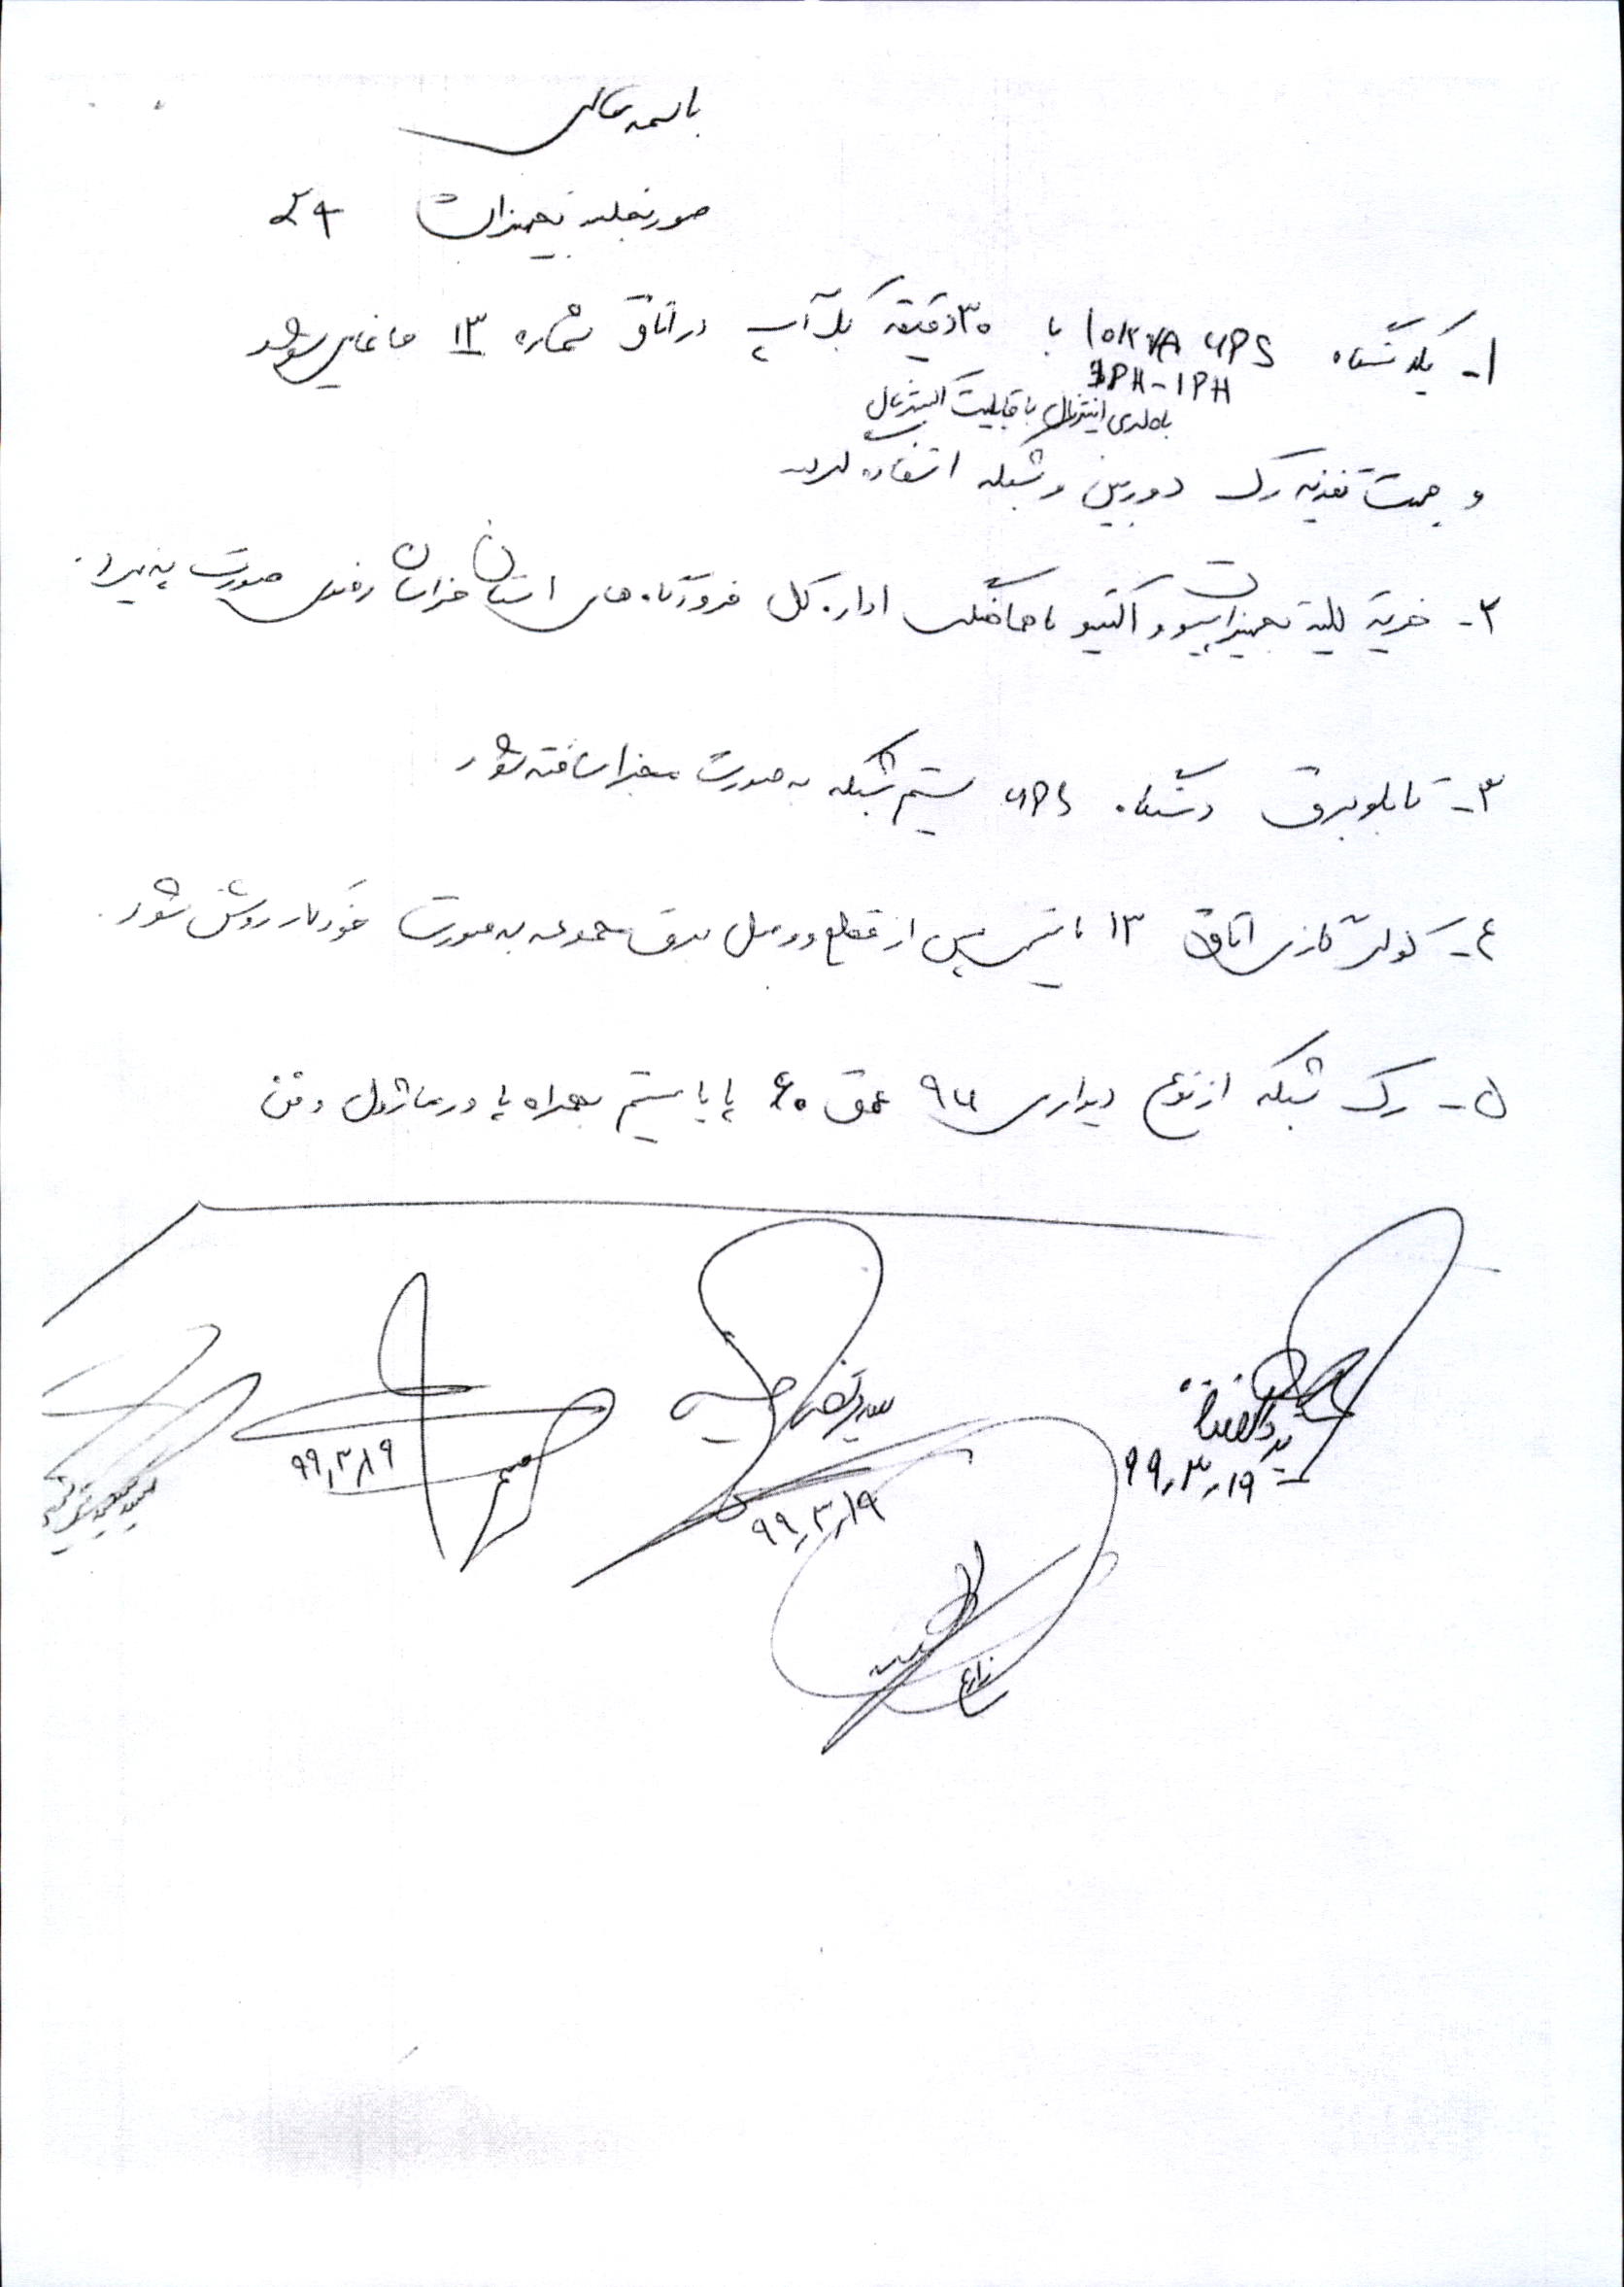 باسمه تعالی
صورتجلسه تجهیزات
۱- یکدستگاه 10KVA UPS با ۳۰ دقیقه بک آپ در اتاق شماره ۱۳ جانمایی شود
1PH-1PH
باطری اینترنال با قابلیت اکسترنال
و جهت تغذیه رک دوربین و شبکه استفاده گردد
۲- خرید کلیه تجهیزات پسیو و اکتیو با هماهنگی اداره کل فرودگاه های استان خراسان رضوی صورت پذیرد.
۳- تابلو برق دستگاه UPS سیستم شبکه به صورت مجزا ساخته شود
۴- کولر گازی اتاق ۱۳ بایستی پس از قطع و وصل برق مجموعه به صورت خودکار روشن شود.
۵- رک شبکه از نوع دیواری 9U عمق ۶۰ پایا سیستم بهمراه پاور ماژول و فن
۹۹,۳,۱۹
سید مرتضی
۹۹,۳,۱۹
۹۹,۳,۱۹
زارع